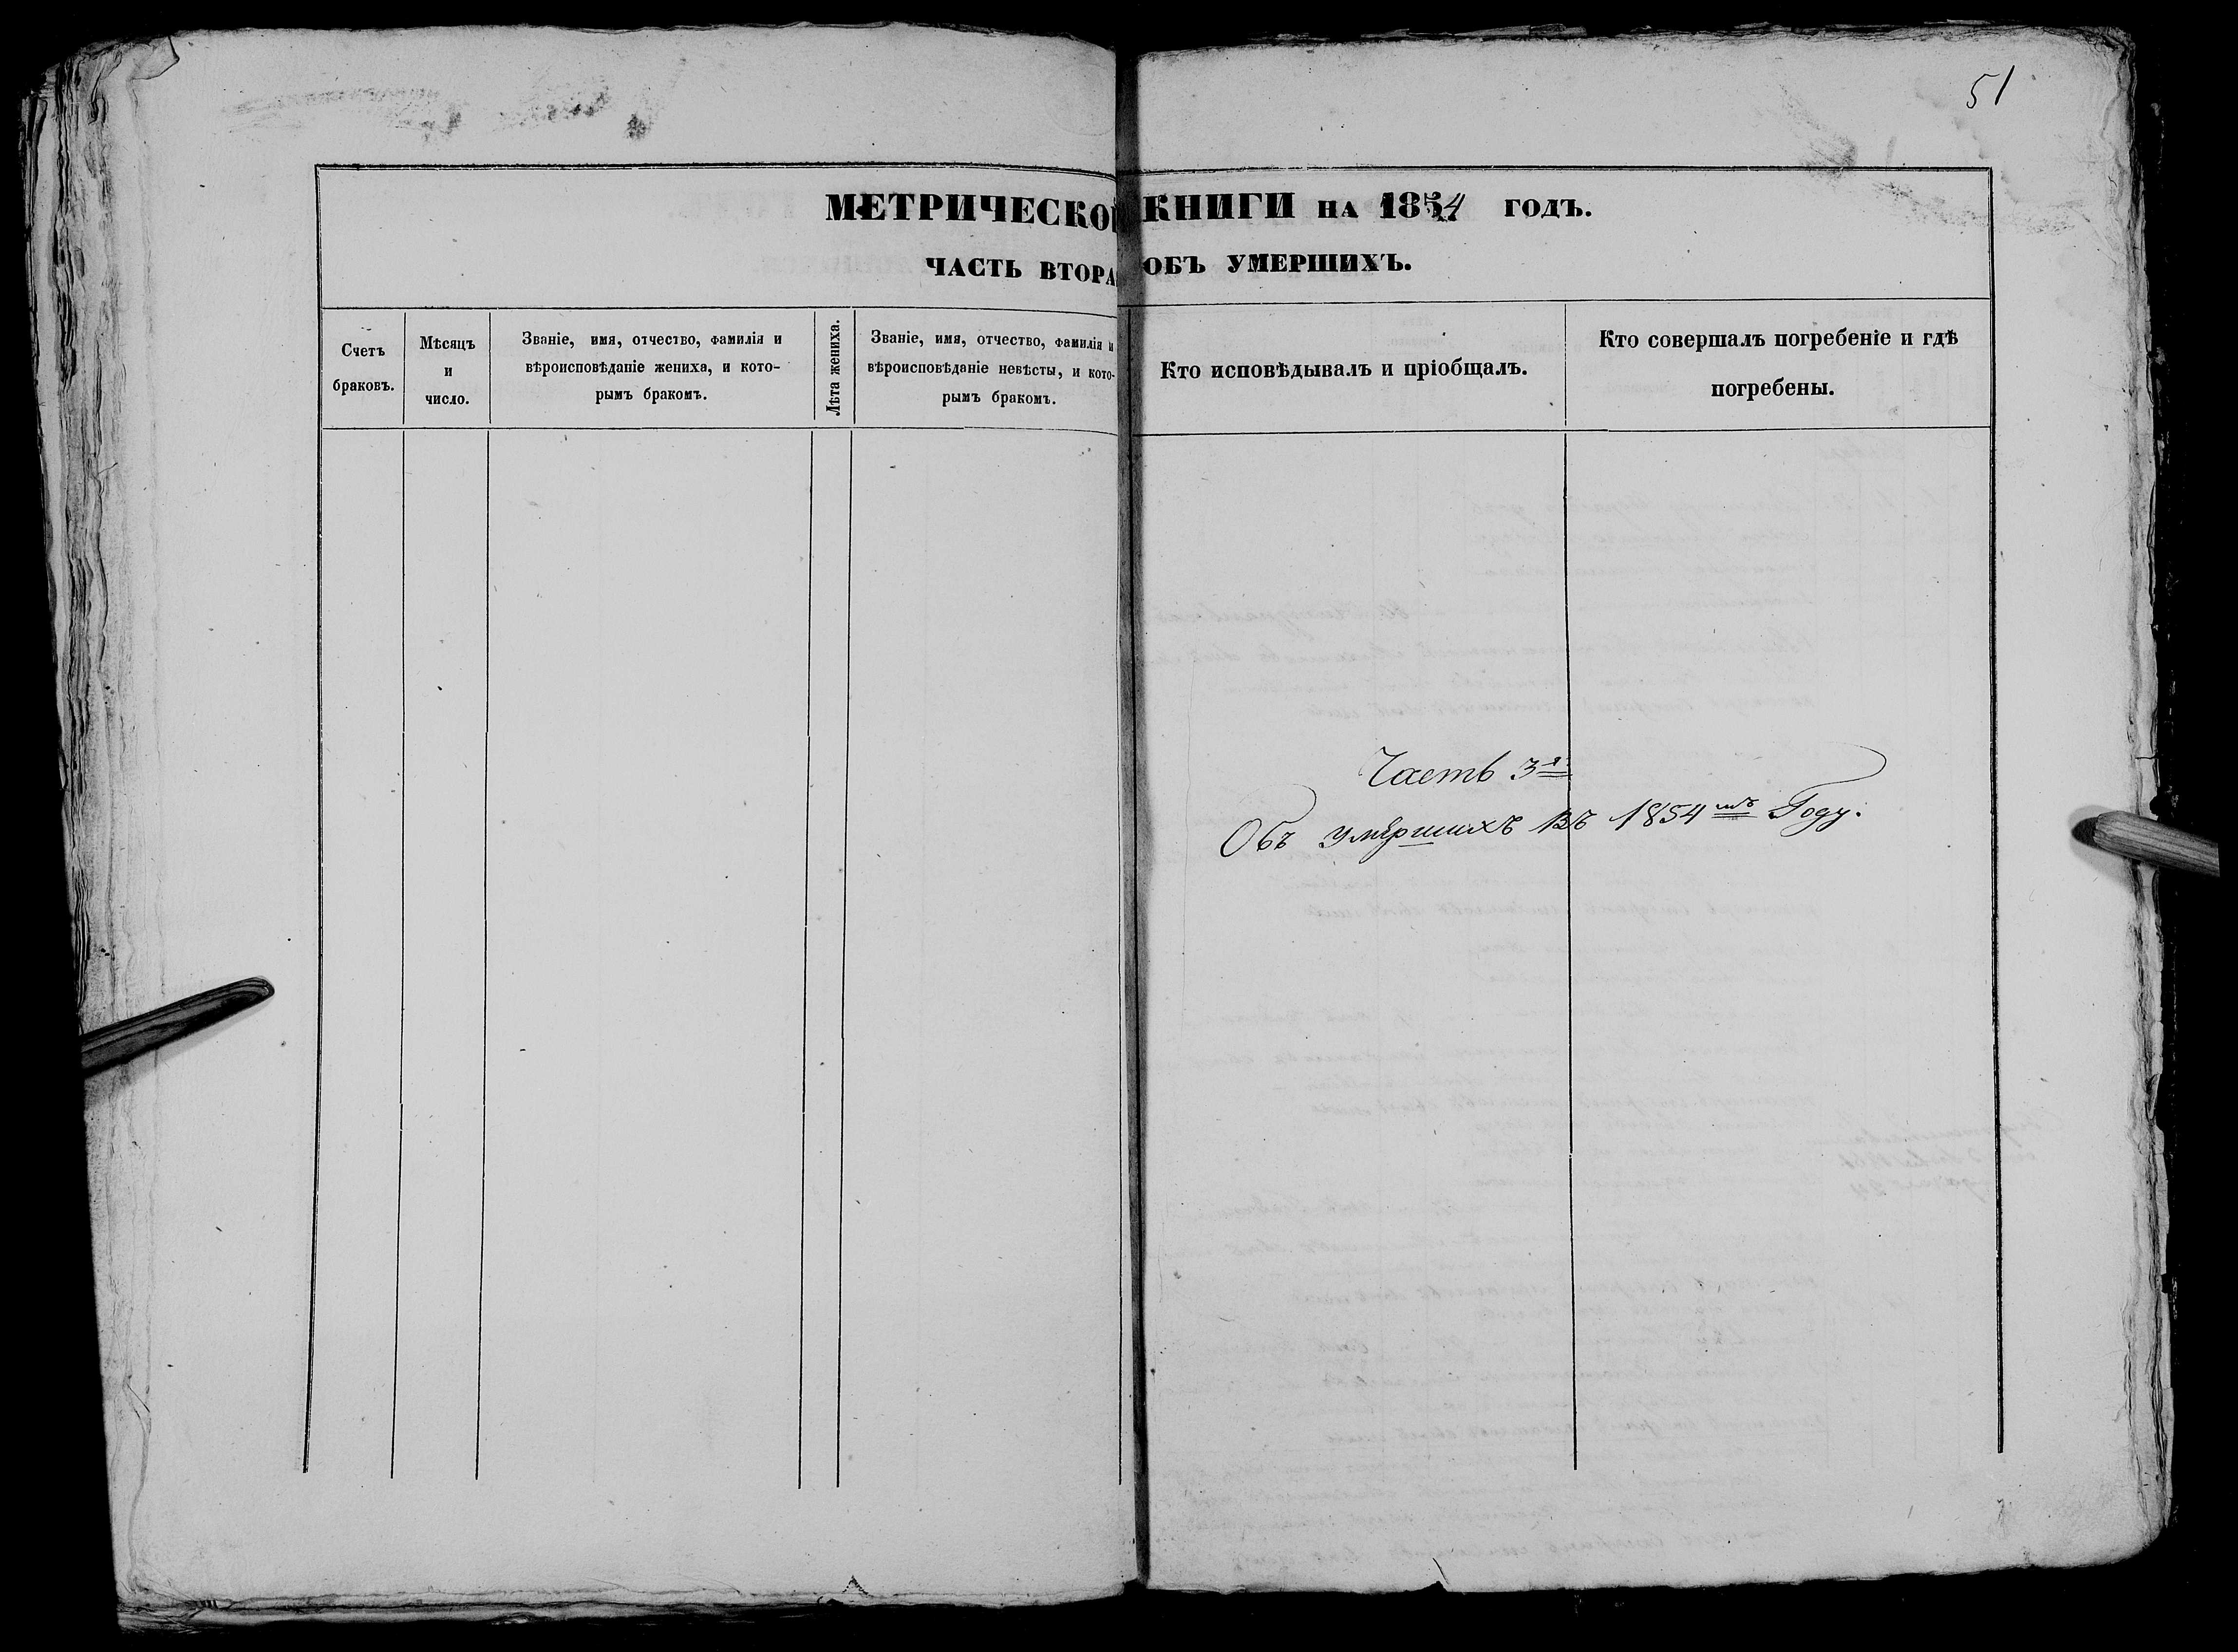 51
МЕТРИЧЕСКО
ЧАСТЬ ВТОРА
Счетъ
браковъ.
Мѣсяцъ
и
число.
Званіе, имя, отчество, фамилія и
вѣроисповѣданіе жениха, и кото-
рымъ бракомъ.
Лѣта жениха.
Званіе, имя, отчество, фамилія и
вѣроисповѣданіе невѣсты, и кото-
рымъ бракомъ.
КНИГИ НА 1854 ГОДЪ.
ОБЪ УМЕРШИХЪ.
Кто исповѣдывалъ и пріобщалъ.
Кто совершалъ погребеніе и гдѣ
погребены.
Часть 3я
Объ умершихъ въ 1854мъ Году.